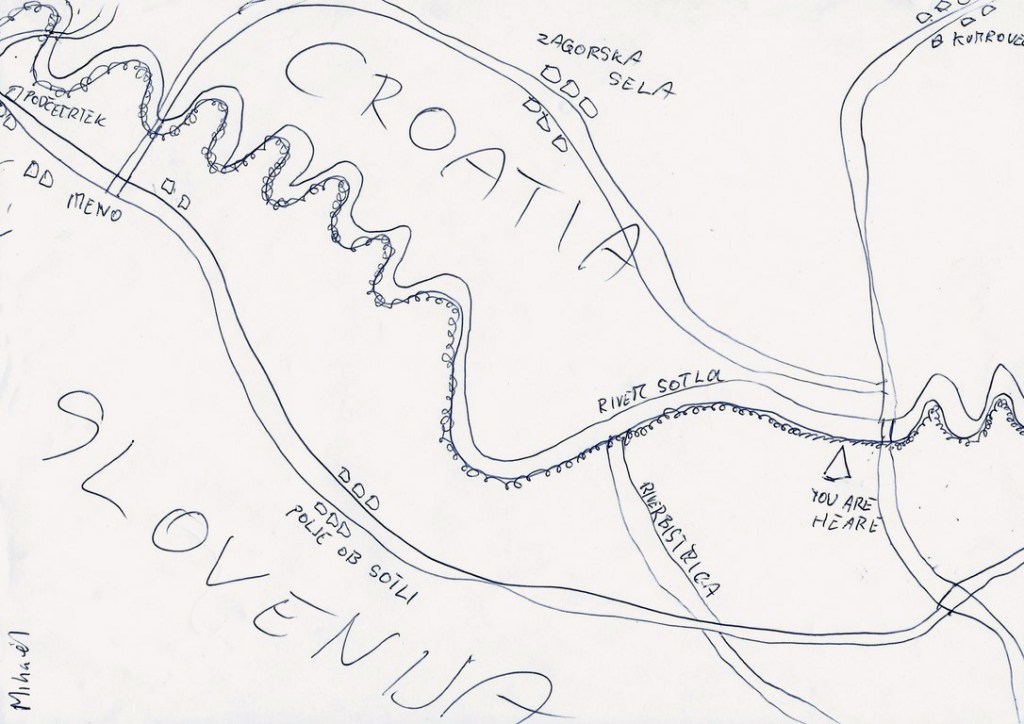 ZAGORSKA
SELA
KUMROVE
CROATIA
PODČETRTEK
MENO
RIVER SOTLA
YOU ARE
HEARE
RIVER BISTRICA
POLJE OB SOTLI
SLOVENIJA
Mihael